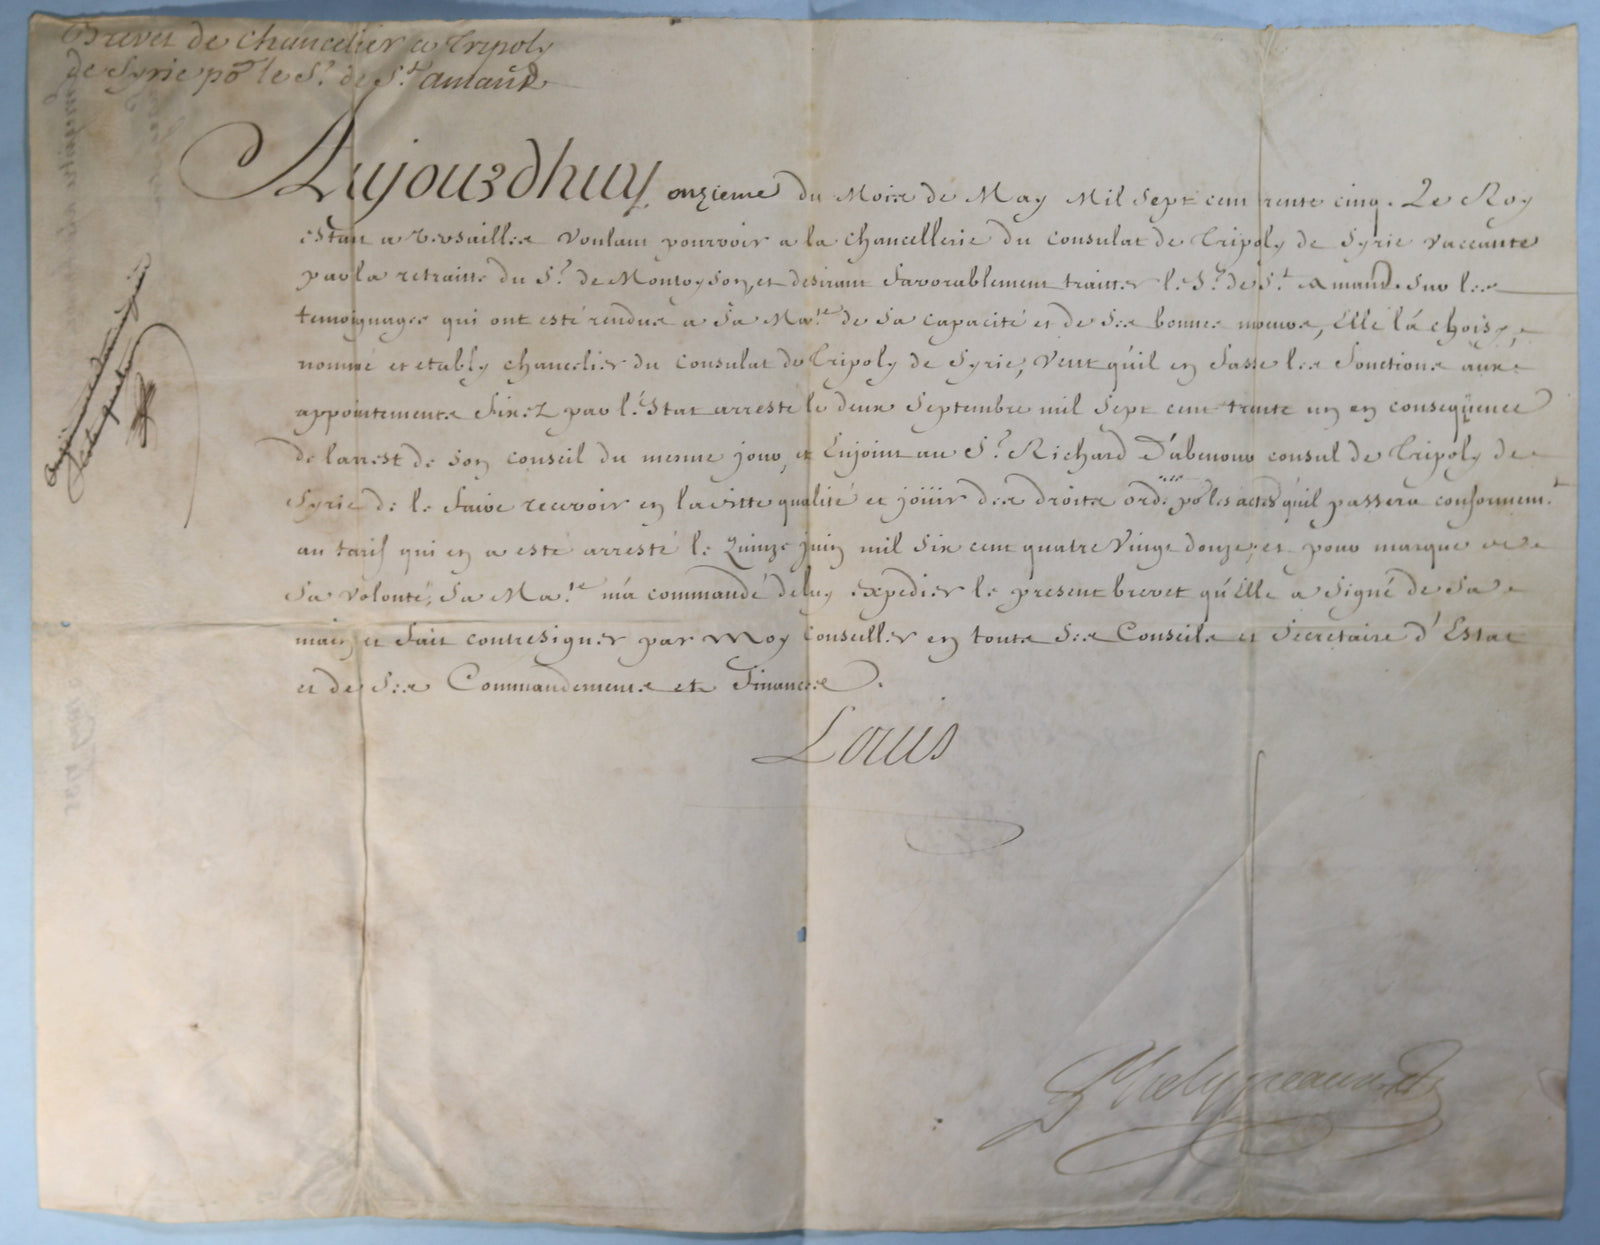 Brevet de chancelier a Tripoly
de Syrie po.r le S.r de S.t amand
Aujourdhuy onzieme du Mois de May Mil Sept cent trente cinq. Le Roy
estant a Versailles voulant pourvoir a la chancellerie du consulat de Tripoly de Syrie vaccante
par la retraitte du S.r de Montoyson, et desirant favorablement traitter le S.r de S.t Amand. Sur les
temoignages qui ont esté rendus a Sa Ma.té de Sa capacité et de Ses bonnes moeurs, Elle l'á choisy,
nommé et etably chancelier du consulat de Tripoly de Syrie, veut qu'il en fasse les fonctions aux
appointements fixez par l'Estat arresté le deux Septembre mil Sept cent trente un en consequence
de l'arrest de Son conseil du mesme jour, et Enjoint au S.r Richard D'abenour consul de Tripoly de
Syrie de le faire recevoir en laditte qualité et joüir des droits ord.res po.r les actes qu'il passera conformem.t
au tarif qui en a esté arresté le Quinze juin mil Six cent quatre Vingt douze, et pour marque de
Sa volonté, Sa Ma.té m'á commandé de luy expedier le present brevet qu'Elle a Signé de Sa
main et fait contresigner par moy Conseiller en tous Ses Conseils et Secretaire d'Estat
et de Ses Commandements et Finances.
Louis
Phelypeaux